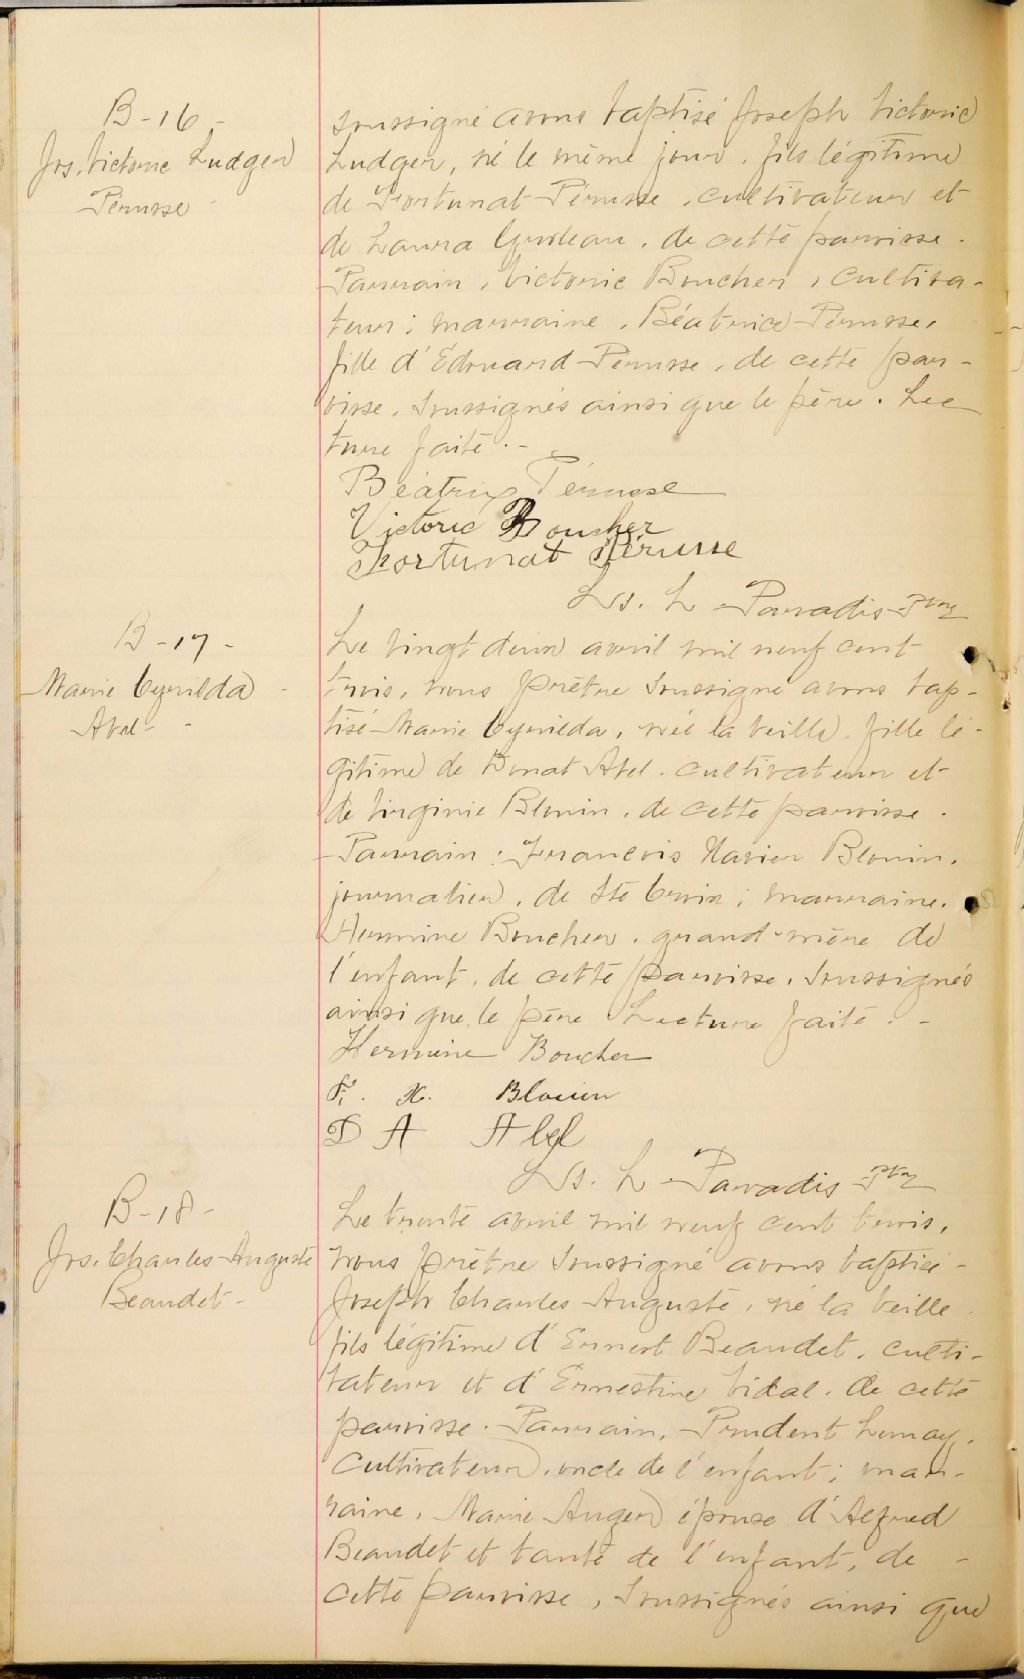 B-16-
Jos. Victoric Ludger
Pérusse
soussigné avons baptisé Joseph Victoric
Ludger, né le même jour, fils légitime
de Fortunat Pérusse, cultivateur et
de Laura Croteau, de cette paroisse.
Parrain, Victoric Boucher, cultiva-
teur; marraine, Béatrice Pérusse,
fille d'Edouard Pérusse, de cette par-
oisse, Soussignés ainsi que le père. Lec
ture faite.-
Béatrix Pérusse
Victoric Boucher
Fortunat Pérusse
Ls. L. Paradis Ptre
B-17-
Marie Cyrilda
Abel-
Le vingt deux avril mil neuf cent
trois, nous prêtre soussigné avons bap-
tisé Marie Cyrilda, née la veille, fille lé-
gitime de Donat Abel, cultivateur et
de Virginie Blouin, de cette paroisse.
Parrain: Francois Xavier Blouin,
journalier, de Ste Croix; marraine,
Hermine Boucher, grand-mère de
l'enfant, de cette paroisse, Soussignés
ainsi que le père Lecture faite.-
Hermine Boucher
F. X. Blouin
D A Abel
Ls. L. Paradis Ptre
B-18-
Jos. Charles-Auguste
Beaudet-
Le trente avril mil neuf cent trois,
nous prêtre soussigné avons baptisé-
Joseph Charles Auguste, né la veille
fils légitime d'Ernest Beaudet, culti-
vateur et d'Ernestine Vidal, de cette
paroisse. Parrain, Prudent Lemay,
cultivateur, oncle de l'enfant; mar-
raine, Marie Auger épouse d'Alfred
Beaudet et tante de l'enfant, de -
cette paroisse, Soussignés ainsi que